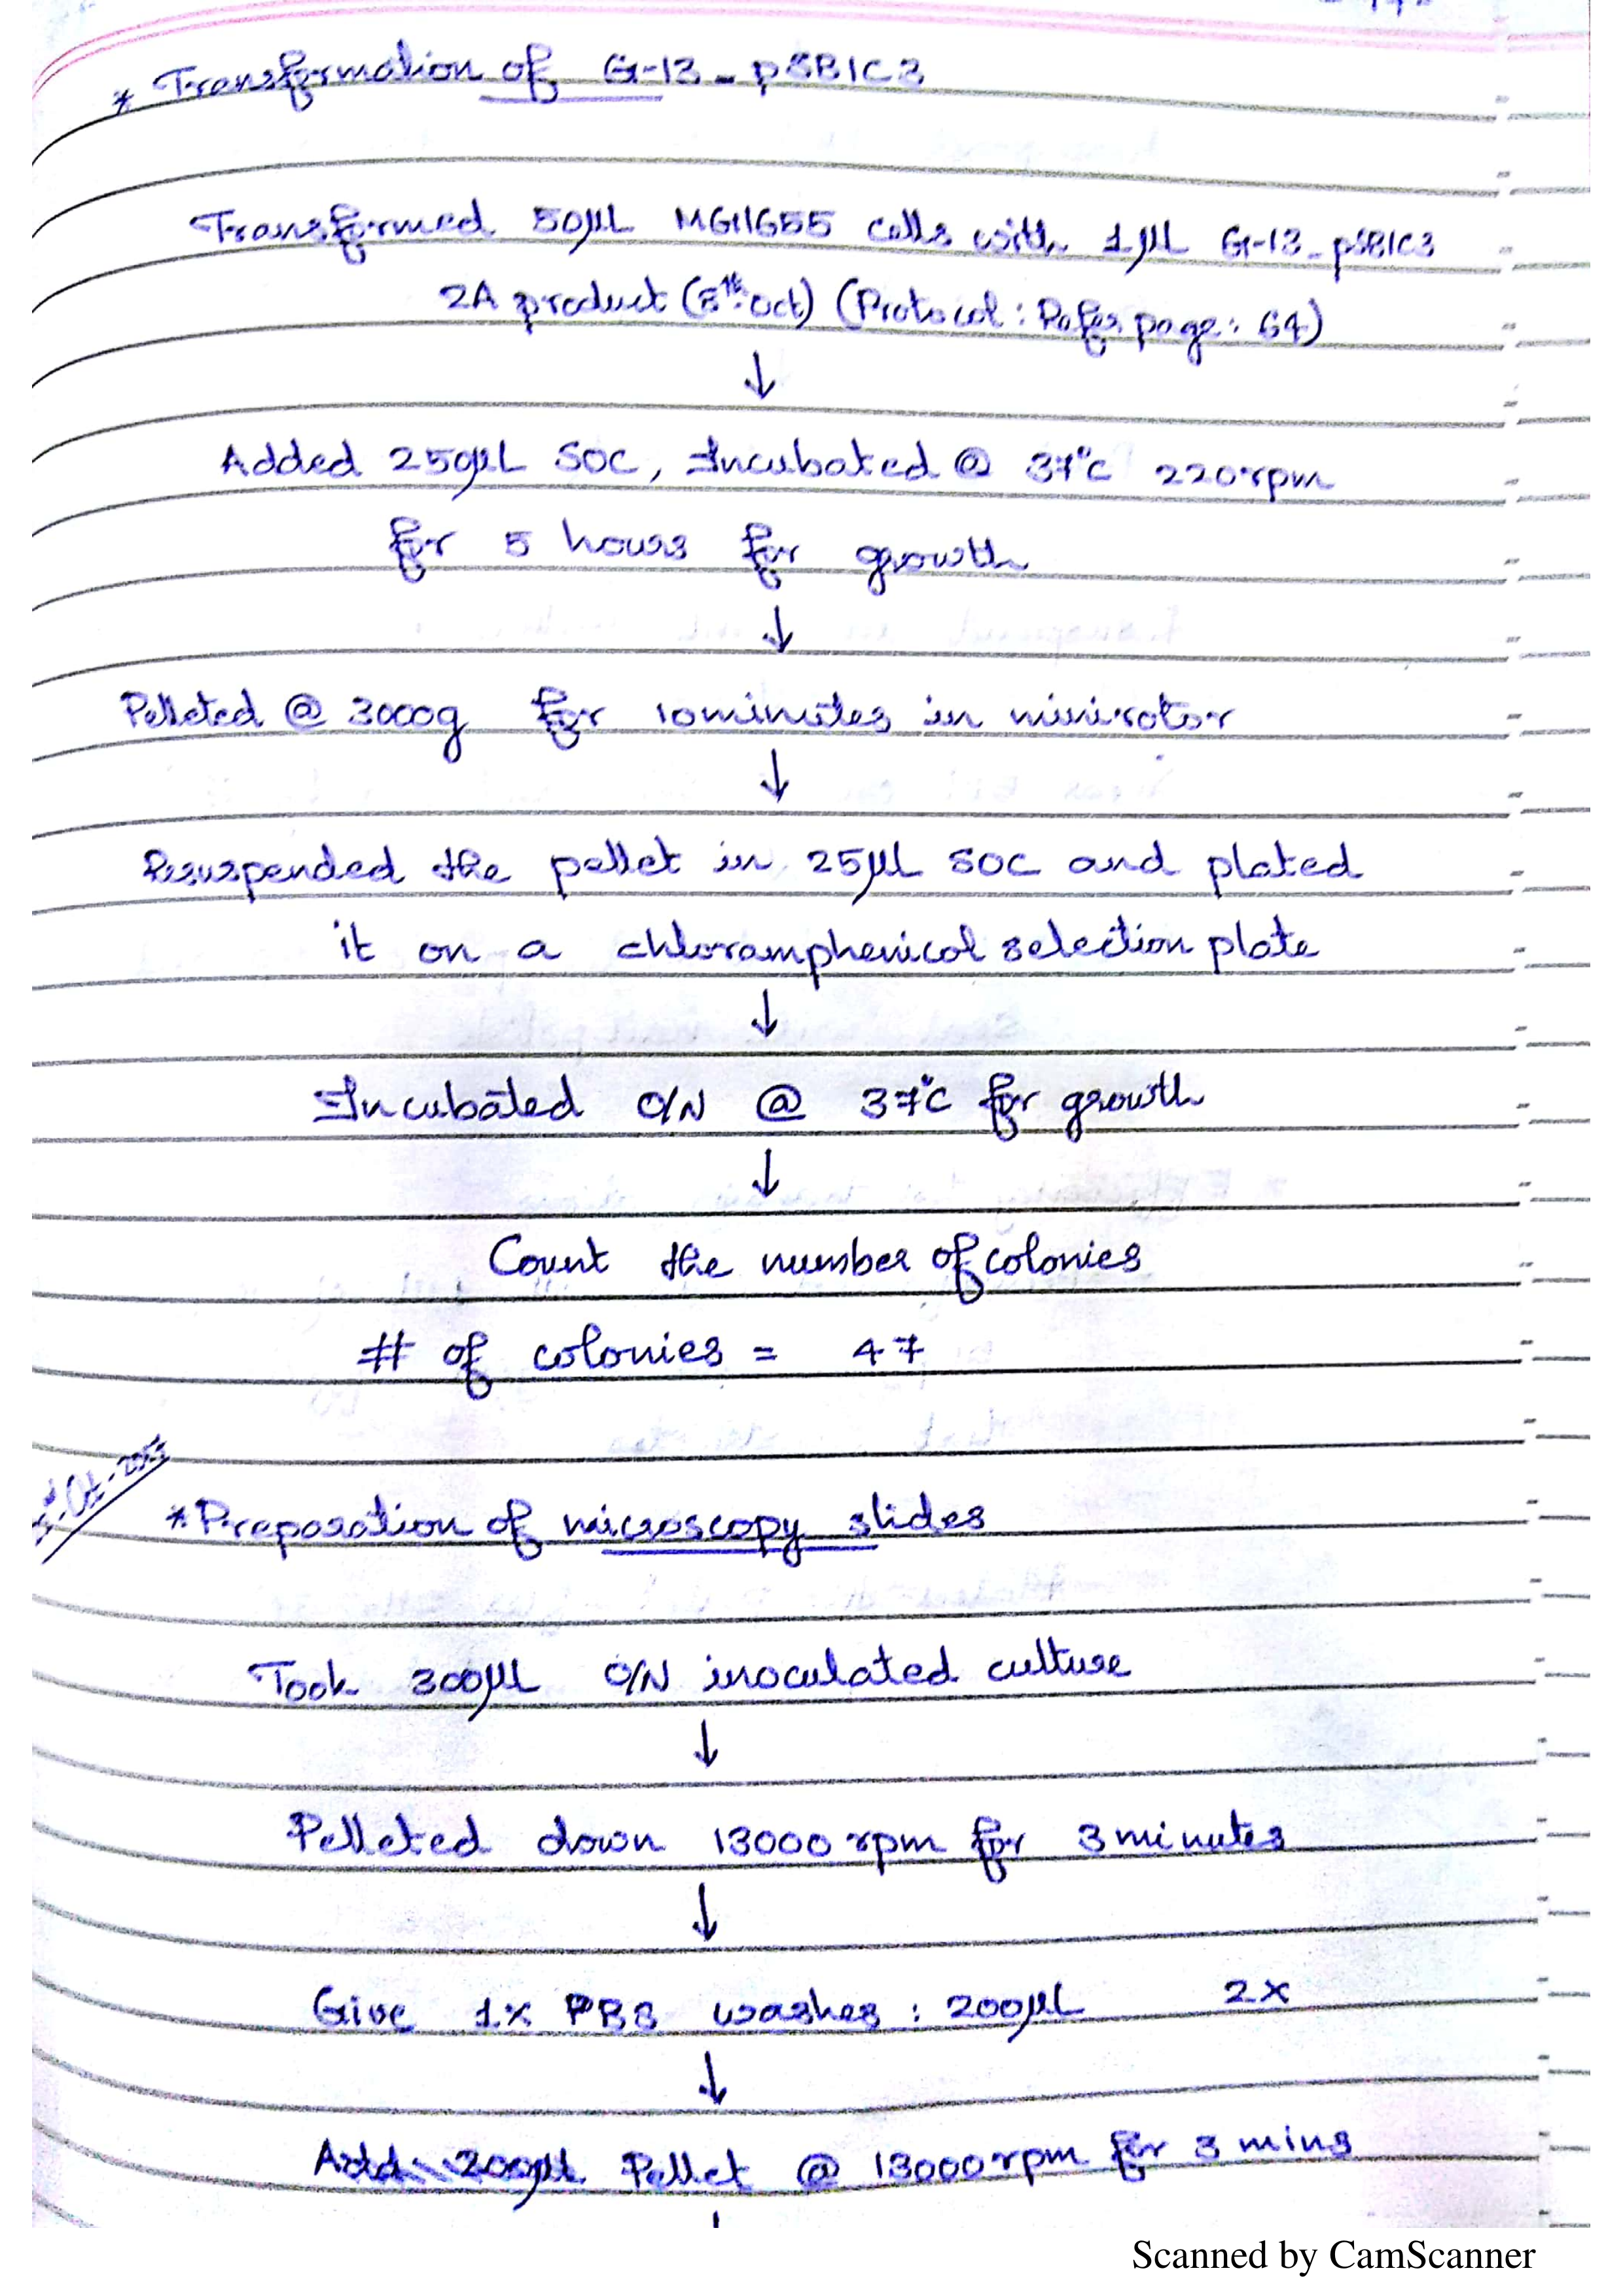 * Transformation of G-13_pSB1C3
Transformed 50µL MG1655 cells with 1µL G-13_pSB1C3
2A product (5th Oct) (Protocol : Refer page: 64)
↓
Added 250µL SOC, Incubated @ 37°C 220rpm
for 5 hours for growth
↓
Pelleted @ 3000g for 10minutes in minirotor
↓
Resuspended the pellet in 25µL SOC and plated
it on a chloramphenicol selection plate
↓
Incubated O/N @ 37°C for growth
↓
Count the number of colonies
# of colonies = 47
* Preparation of microscopy slides
Took 300µL O/N inoculated culture
↓
Pelleted down 13000 rpm for 3 minutes
↓
Give 1x PBS washes : 200µL 2x
↓
Add 200µL Pellet @ 13000rpm for 3 mins
Scanned by CamScanner